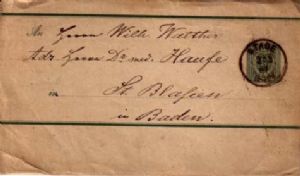 An Herrn Willi Walther
Adr. Herrn Dr. med. Haufe
in
St. Blasien
in Baden.
STADE